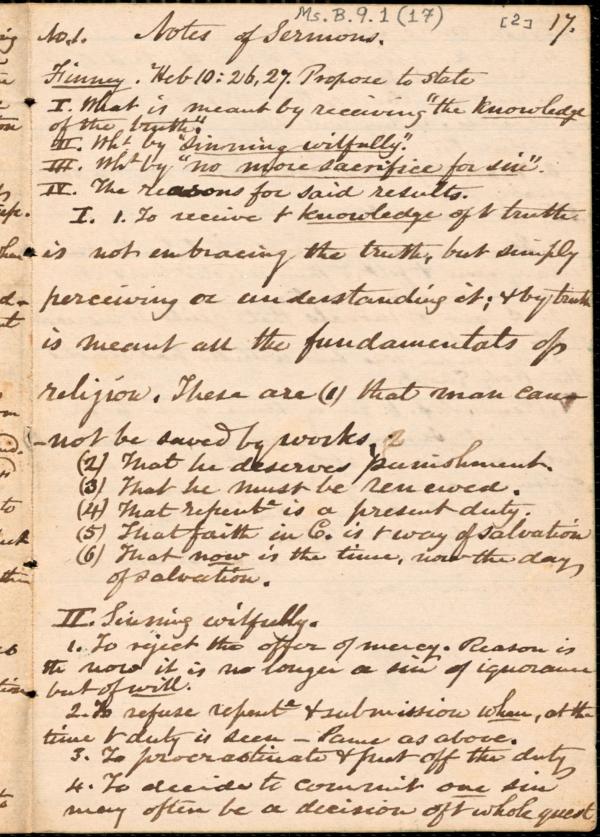 Ms. B. 9. 1 (17)
[2] 17.
No. 1. Notes of Sermons.
Finney. Heb 10: 26, 27. Propose to state
I. What is meant by receiving "the knowledge
of the truth."
II. Wht by "sinning wilfully."
III. Wht by "no more sacrifice for sin".
IV. The reasons for said results.
I. 1. To receive t knowledge of t truth
is not embracing the truth, but simply
perceiving or understanding it; & by truth
is meant all the fundamentals of
religion. These are (1) that man can-
-not be saved by works,
(2) That he deserves punishment.
(3) That he must be renewed.
(4) That repentce is a present duty.
(5) That faith in C. is t way of salvation
(6) That now is the time, now the day
of salvation.
II. Sinning wilfully.
1. To reject the offer of mercy. Reason is
the now it is no longer a sin of ignorance
but of will.
2. To refuse repentce & submission when, at the
time t duty is seen - Same as above.
3. To procrastinate & put off the duty
4. To decide to commit one sin
may often be a decision of t whole quest